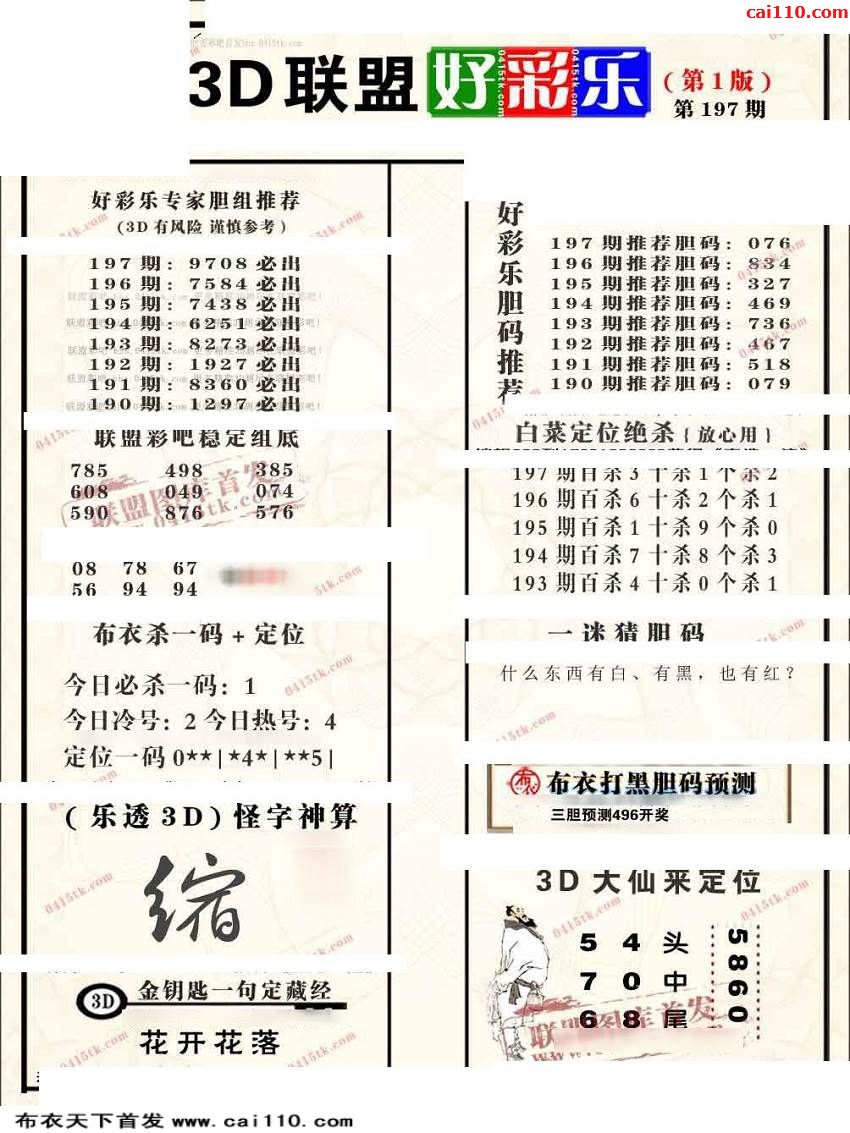 cai110.com
3D联盟 好彩乐 (第1版)
第197期
好彩乐专家胆组推荐
(3D有风险 谨慎参考)
197期: 9708必出
196期: 7584必出
195期: 7438必出
194期: 6251必出
193期: 8273必出
192期: 1927必出
191期: 8360必出
190期: 1297必出
联盟彩吧稳定组底
785 498 385
608 049 074
590 876 576
08 78 67
56 94 94
布衣杀一码+定位
今日必杀一码: 1
今日冷号: 2 今日热号: 4
定位一码 0**|*4*|**5|
(乐透3D)怪字神算
缩
3D 金钥匙一句定藏经
花开花落
好彩乐胆码推荐
197期推荐胆码: 076
196期推荐胆码: 834
195期推荐胆码: 327
194期推荐胆码: 469
193期推荐胆码: 736
192期推荐胆码: 467
191期推荐胆码: 518
190期推荐胆码: 079
白菜定位绝杀{放心用}
197期百杀3十杀1个杀2
196期百杀6十杀2个杀1
195期百杀1十杀9个杀0
194期百杀7十杀8个杀3
193期百杀4十杀0个杀1
一迷猜胆码
什么东西有白、有黑，也有红？
布衣打黑胆码预测
三胆预测496开奖
3D大仙来定位
5 4 头
7 0 中
6 8 尾
5860
联盟图库首发
0415tk.com
布衣天下首发 www.cai110.com